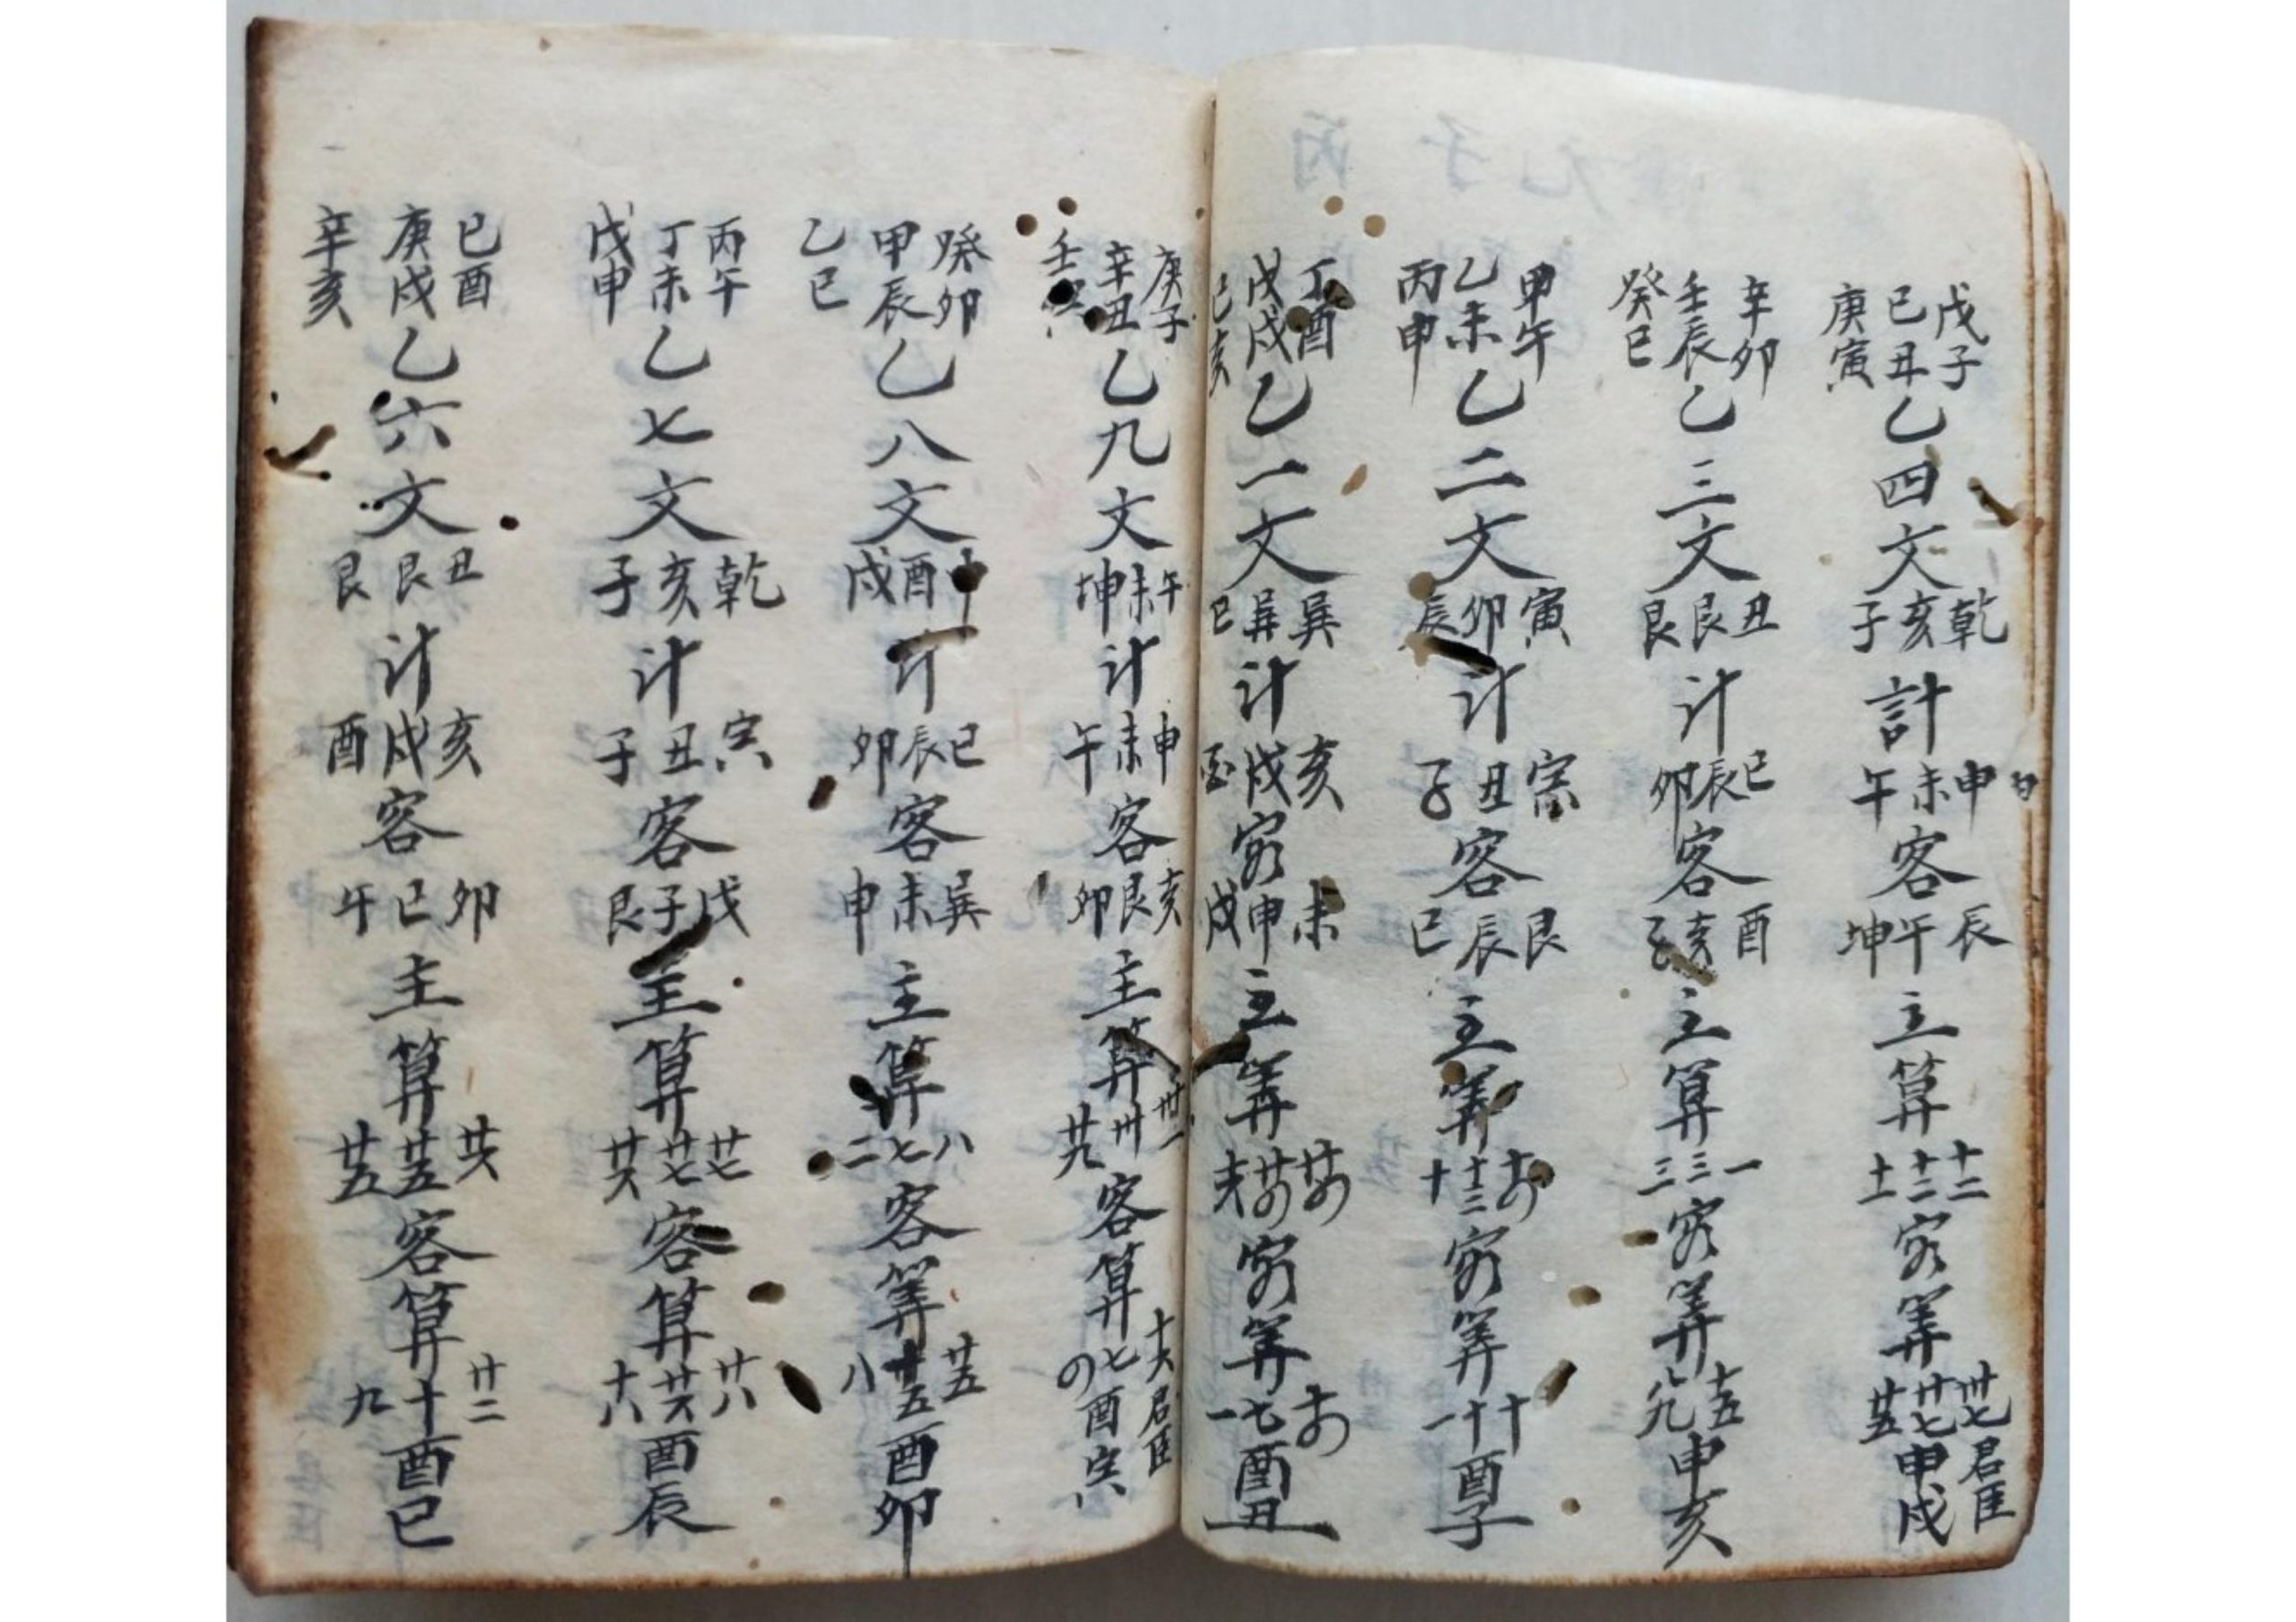 戊子 己丑 庚寅 乙四文 乾亥子 計 申未午 客 辰午坤 主算 十二 十二 十一 客算 卅七 廿七 廿五 君臣 申戌
辛卯 壬辰 癸巳 乙三文 丑艮艮 计 巳辰卯 客 酉亥子 主算 一 三 三 客算 十五 九 八 申亥
甲午 乙未 丙申 乙二文 寅卯辰 计 寅丑子 客 艮辰巳 主算 十の 十三 十 客算 十 十 一 酉子
丁酉 戊戌 己亥 乙一文 巽巽巳 计 亥戌酉 客 未申戌 主算 廿の 廿の 十六 客算 十の 七 一 酉丑
庚子 辛丑 壬 乙九文 午未坤 计 申未午 客 亥艮卯 主算 卅一 卅 廿九 客算 十六 七 の 君臣 酉寅
癸卯 甲辰 乙巳 乙八文 酉戌 计 巳辰卯 客 巽未申 主算 八 七 二 客算 廿五 十五 八 酉卯
丙午 丁未 戊申 乙七文 乾亥子 计 寅丑子 客 戌子艮 主算 廿七 廿七 廿六 客算 廿八 廿六 十八 酉辰
己酉 庚戌 辛亥 乙六文 丑艮艮 计 亥戌酉 客 卯巳午 主算 廿六 廿五 廿五 客算 廿二 十 九 酉巳